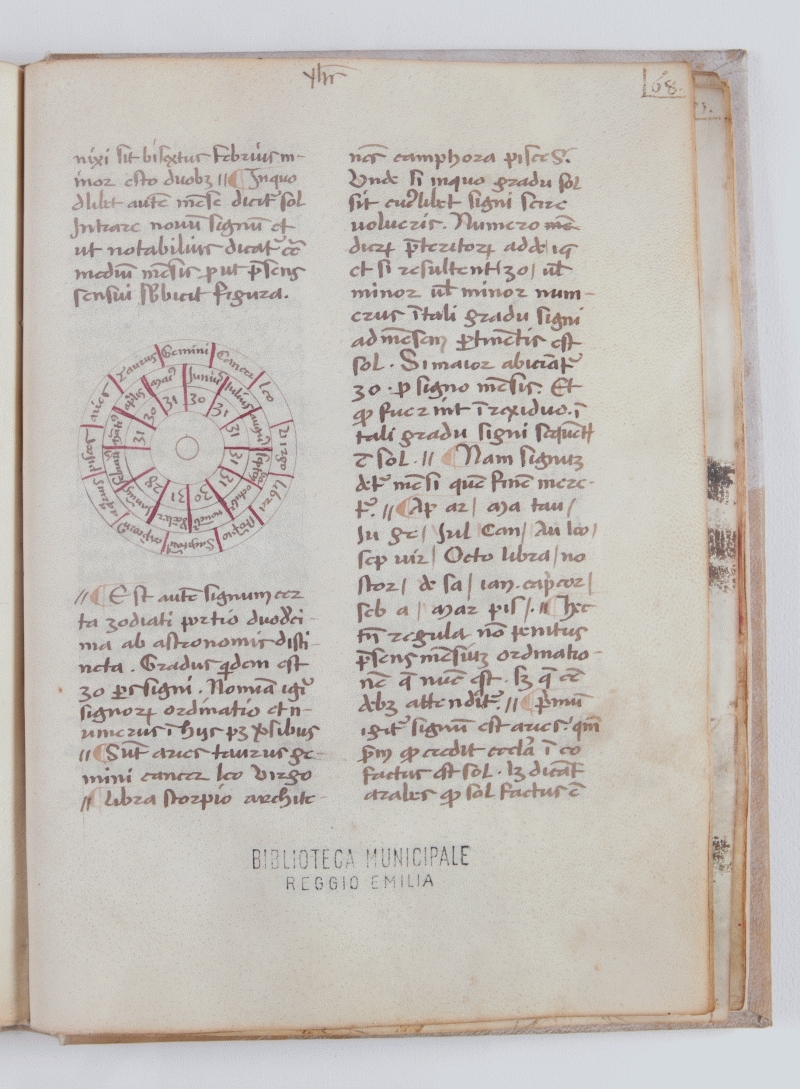 xliii
68.
nixi sit bisextus Februus m-
inor esto duobꝫ // ¶ Inquo
dlibet autē mēse dicit᷑ sol
Intrare nouū signū et
ut notabilius dicat᷑ cē
mediū mēsis put pn̄s
sensui subicit figura.
Aries
Taurus
Gemini
Cancer
leo
Virgo
libra
Scorpio
Sagittari
capicorn
aqrius
pisces
apͥlis
Junius
Julius
augu
septeb
octub
noueb
Januus
30
31
30
31
31
30
31
30
31
31
28
31
// ¶ Est autē signum cer
ta zodiati portio duodēci-
ma ab astronomis disti-
ncta . Gradus qͥdem est
30 ꝑs signi . Nomīa igͥ
signorꝝ ordinatio et n-
umerus ī hys pꝫ ꝟsibus
// ¶ Sūt aries taurus ge-
mini cancer leo virgo
// ¶ libra scorpio archite-
nēs camphora pisces.
Vnde si inquo gradu sol
sit cuꝰlibet signi scire
volueris . Numero mē-
dierꝝ p̄teritorꝝ adde 19
et si resultent 30 / ul̄
minor ul̄ minor num-
erus ī tali gradu signi
ad mēsem ꝑtinētis est
sol . Si maior abiciāt᷑
30 . ꝓ signo mēsis . Et
qͦ fuerint ī rexiduo . ī
tali gradu signi sequēt
ē sol . // ¶ Nam signuꝫ
det᷑ mēsi que fine mere-
t᷑ . // ¶ Ap ar / Ma tau /
Iu ge / Iul Can / Au leo /
sep vir / Octo libra / no
scor / de sa / ian. capcor /
feb a / Mar pis / . // ¶ Hec
tn̄ regula nō penitus
pn̄s mēsiuꝫ ordinatio-
nē q̄ nūc est . sꝫ q̄ eē
debꝫ attendit᷑ . // ¶ Pͥmū
igit᷑ signū est aries . qm̄
pͥm qͦ credit eccl̄a ī eo
factus est sol . lꝫ dicāt
arabes qͦ sol factus ē
BIBLIOTECA MUNICIPALE
REGGIO EMILIA